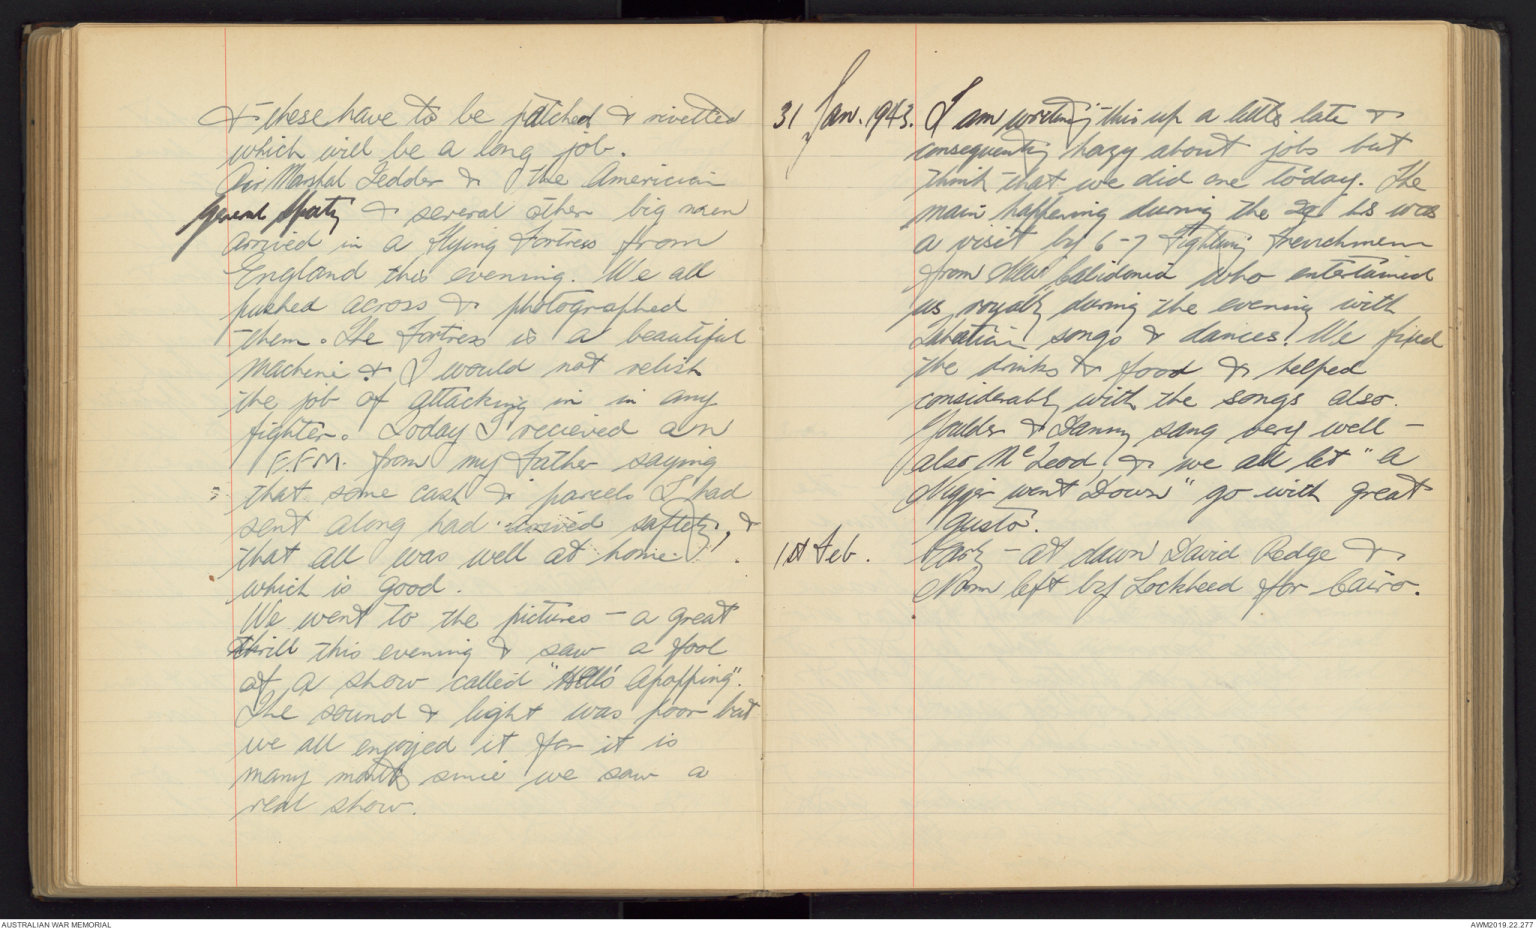 & these have to be patched & rivetted
which will be a long job.
Air Marshal Tedder & the American
General Spaatz & several other big men
arrived in a Flying Fortress from
England this evening. We all
pushed across & photographed
them. The Fortress is a beautiful
machine & I would not relish
the job of attacking in in any
fighter. Today I recieved an
E.F.M. from my Father saying
that some cash & parcels I had
sent along had arrived saftely, &
that all was well at home.
which is good.
We went to the pictures - a great
thrill this evening & saw a fool
of a show called "Hello Apopping".
The sound & light was poor but
we all enjoyed it for it is
many months since we saw a
real show.
31 Jan. 1943. I am writing this up a little late &
consequently hazy about jobs but
think that we did one today. The
main happening during the 24 hrs was
a visit by 6-7 Fighting Frenchmen
from New Calidonia who entertained
us royally during the evening with
Tahatian songs & dances. We fixed
the drinks & food & helped
considerably with the songs also.
Goulder & Danny sang very well -
also McLeod, & we all let "A
Nigger went Down" go with great
gusto.
1st Feb. Early - at dawn David Redge &
Norm left by Lockheed for Cairo.
AUSTRALIAN WAR MEMORIAL
AWM2019.22.277